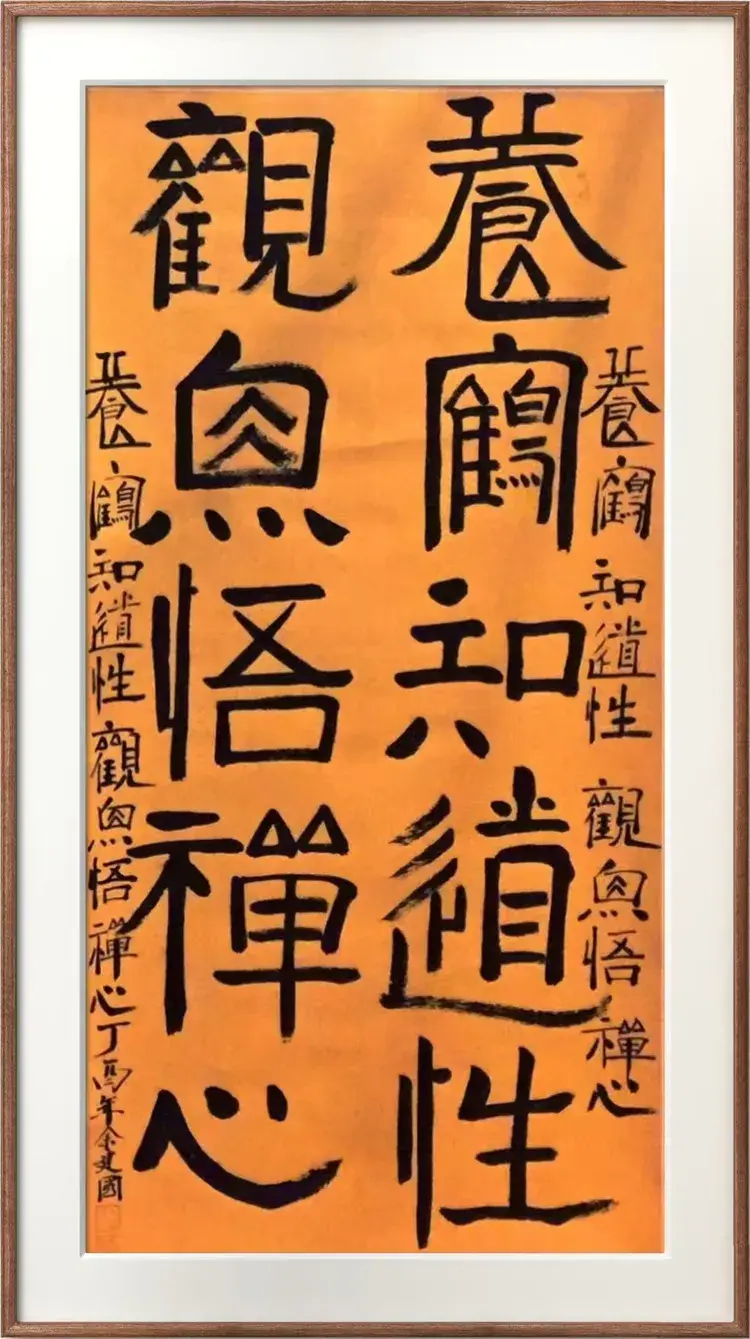 養鶴知道性 觀魚悟禪心
養鶴知道性
觀魚悟禪心
養鶴知道性觀魚悟禪心丁酉年建國